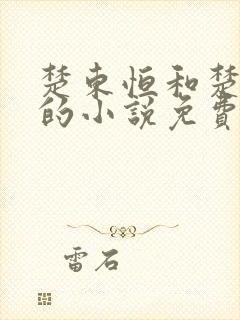 楚东恒和楚
的小說免費
雷石